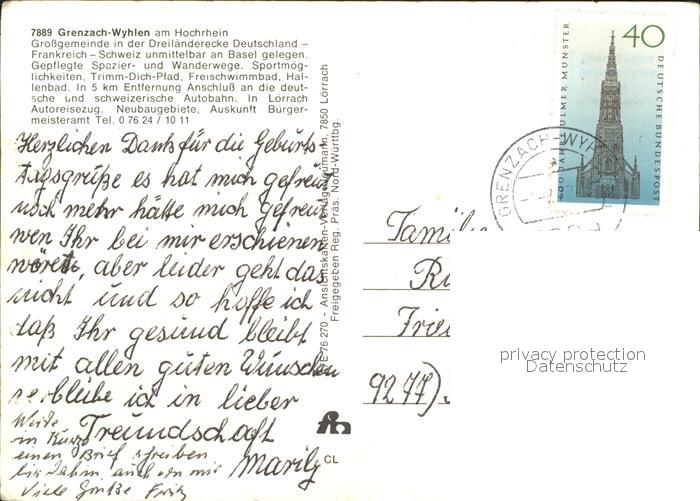 7889 Grenzach-Wyhlen am Hochrhein
Großgemeinde in der Dreiländerecke Deutschland –
Frankreich – Schweiz unmittelbar an Basel gelegen.
Gepflegte Spazier- und Wanderwege. Sportmög-
lichkeiten, Trimm-Dich-Pfad, Freischwimmbad, Hal-
lenbad. In 5 km Entfernung Anschluß an die deut-
sche und schweizerische Autobahn. In Lörrach
Autoreisezug. Neubaugebiete, Auskunft Bürger-
meisteramt Tel. 0 76 24 / 10 11
Herzlichen Dank für die Geburts-
tagsgrüße es hat mich gefreut
noch mehr hätte mich gefreut
wen Ihr bei mir erschienen
wäret, aber leider geht das
nicht und so hoffe ich
daß Ihr gesund bleibt
mit allen guten Wünschen
verbleibe ich in lieber
Freundschaft
Marily
Werde
in Kürze
einen Brief schreiben
bis dahin, auch von mir
Viele Grüße Fritz
E 76 270 - Ansichtskarten-Verlag Neumann, 7850 Lörrach
Freigegeben Reg. Präs. Nord-Württbg.
CL
40
600 JAHRE ULMER MÜNSTER
DEUTSCHE BUNDESPOST
GRENZACH-WYH
Famil
Ru
Fried
9277)
privacy protection
Datenschutz